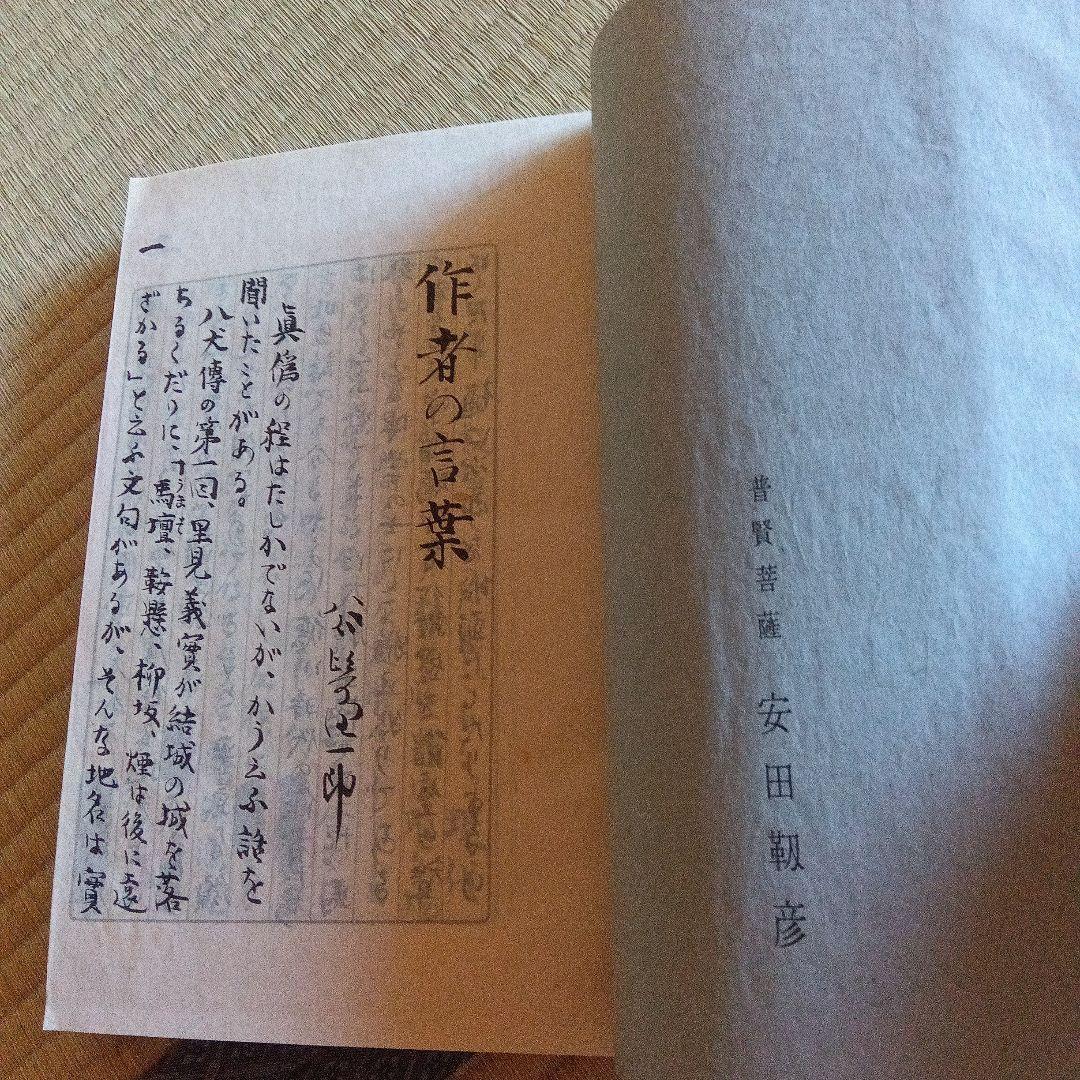 普賢菩薩 安田靫彦
作者の言葉
谷崎潤一郎
眞僞の程はたしかでないが、かう云ふ話を
聞いたことがある。
八犬傳の第一囘、里見義實が結城の城を落
ちるくだりに、「馬壇、鞍懸、柳坂、煙は後に遠
ざかる」と云ふ文句があるが、そんな地名は實
一